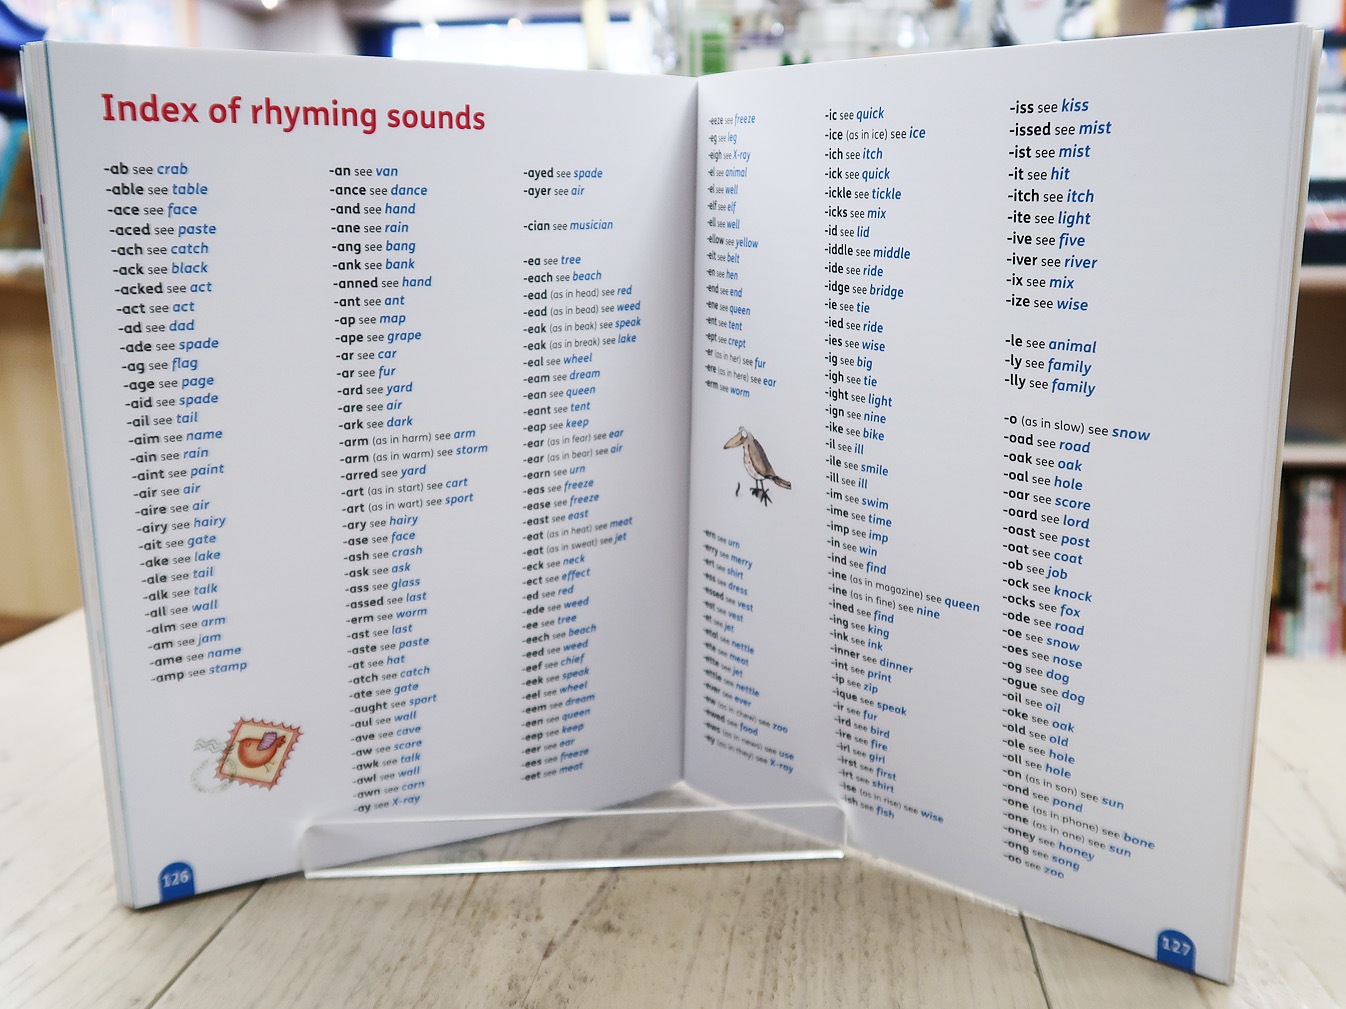 Index of rhyming sounds
-ab see crab
-able see table
-ace see face
-aced see paste
-ach see catch
-ack see black
-acked see act
-act see act
-ad see dad
-ade see spade
-ag see flag
-age see page
-aid see spade
-ail see tail
-aim see name
-ain see rain
-aint see paint
-air see air
-aire see air
-airy see hairy
-ait see gate
-ake see lake
-ale see tail
-alk see talk
-all see wall
-alm see arm
-am see jam
-ame see name
-amp see stamp
-an see van
-ance see dance
-and see hand
-ane see rain
-ang see bang
-ank see bank
-anned see hand
-ant see ant
-ap see map
-ape see grape
-ar see car
-ar see fur
-ard see yard
-are see air
-ark see dark
-arm (as in harm) see arm
-arm (as in warm) see storm
-arred see yard
-art (as in start) see cart
-art (as in wart) see sport
-ary see hairy
-ase see face
-ash see crash
-ask see ask
-ass see glass
-assed see last
-erm see worm
-ast see last
-aste see paste
-at see hat
-atch see catch
-ate see gate
-aught see sport
-aul see wall
-ave see cave
-aw see score
-awk see talk
-awl see wall
-awn see corn
-ay see X-ray
-ayed see spade
-ayer see air
-cian see musician
-ea see tree
-each see beach
-ead (as in head) see red
-ead (as in bead) see weed
-eak (as in beak) see speak
-eak (as in break) see lake
-eal see wheel
-eam see dream
-ean see queen
-eant see tent
-eap see keep
-ear (as in fear) see ear
-ear (as in bear) see air
-earn see urn
-eas see freeze
-ease see freeze
-east see east
-eat (as in heat) see meat
-eat (as in sweat) see jet
-eck see neck
-ect see effect
-ed see red
-ede see weed
-ee see tree
-eech see beach
-eed see weed
-eef see chief
-eek see speak
-eel see wheel
-eem see dream
-een see queen
-eep see keep
-eer see ear
-ees see freeze
-eet see meat
126
-eeze see freeze
-eg see leg
-eigh see X-ray
-el see animal
-el see well
-elf see elf
-ell see well
-ellow see yellow
-elt see belt
-en see hen
-end see end
-ene see queen
-ent see tent
-ept see crept
-er (as in her) see fur
-ere (as in here) see ear
-erm see worm
-ern see urn
-erry see merry
-ert see shirt
-ess see dress
-essed see vest
-est see vest
-et see jet
-etal see nettle
-ete see meat
-ette see jet
-ettle see nettle
-ever see ever
-ew (as in chew) see zoo
-ewed see food
-ews (as in news) see use
-ey (as in they) see X-ray
-ic see quick
-ice (as in ice) see ice
-ich see itch
-ick see quick
-ickle see tickle
-icks see mix
-id see lid
-iddle see middle
-ide see ride
-idge see bridge
-ie see tie
-ied see ride
-ies see wise
-ig see big
-igh see tie
-ight see light
-ign see nine
-ike see bike
-il see ill
-ile see smile
-ill see ill
-im see swim
-ime see time
-imp see imp
-in see win
-ind see find
-ine (as in magazine) see queen
-ine (as in fine) see nine
-ined see find
-ing see king
-ink see ink
-inner see dinner
-int see print
-ip see zip
-ique see speak
-ir see fur
-ird see bird
-ire see fire
-irl see girl
-irst see first
-irt see shirt
-ise (as in rise) see wise
-ish see fish
-iss see kiss
-issed see mist
-ist see mist
-it see hit
-itch see itch
-ite see light
-ive see five
-iver see river
-ix see mix
-ize see wise
-le see animal
-ly see family
-lly see family
-o (as in slow) see snow
-oad see road
-oak see oak
-oal see hole
-oar see score
-oard see lord
-oast see post
-oat see coat
-ob see job
-ock see knock
-ocks see fox
-ode see road
-oe see snow
-oes see nose
-og see dog
-ogue see dog
-oil see oil
-oke see oak
-old see old
-ole see hole
-oll see hole
-on (as in son) see sun
-ond see pond
-one (as in phone) see bone
-one (as in one) see sun
-oney see honey
-ong see song
-oo see zoo
127